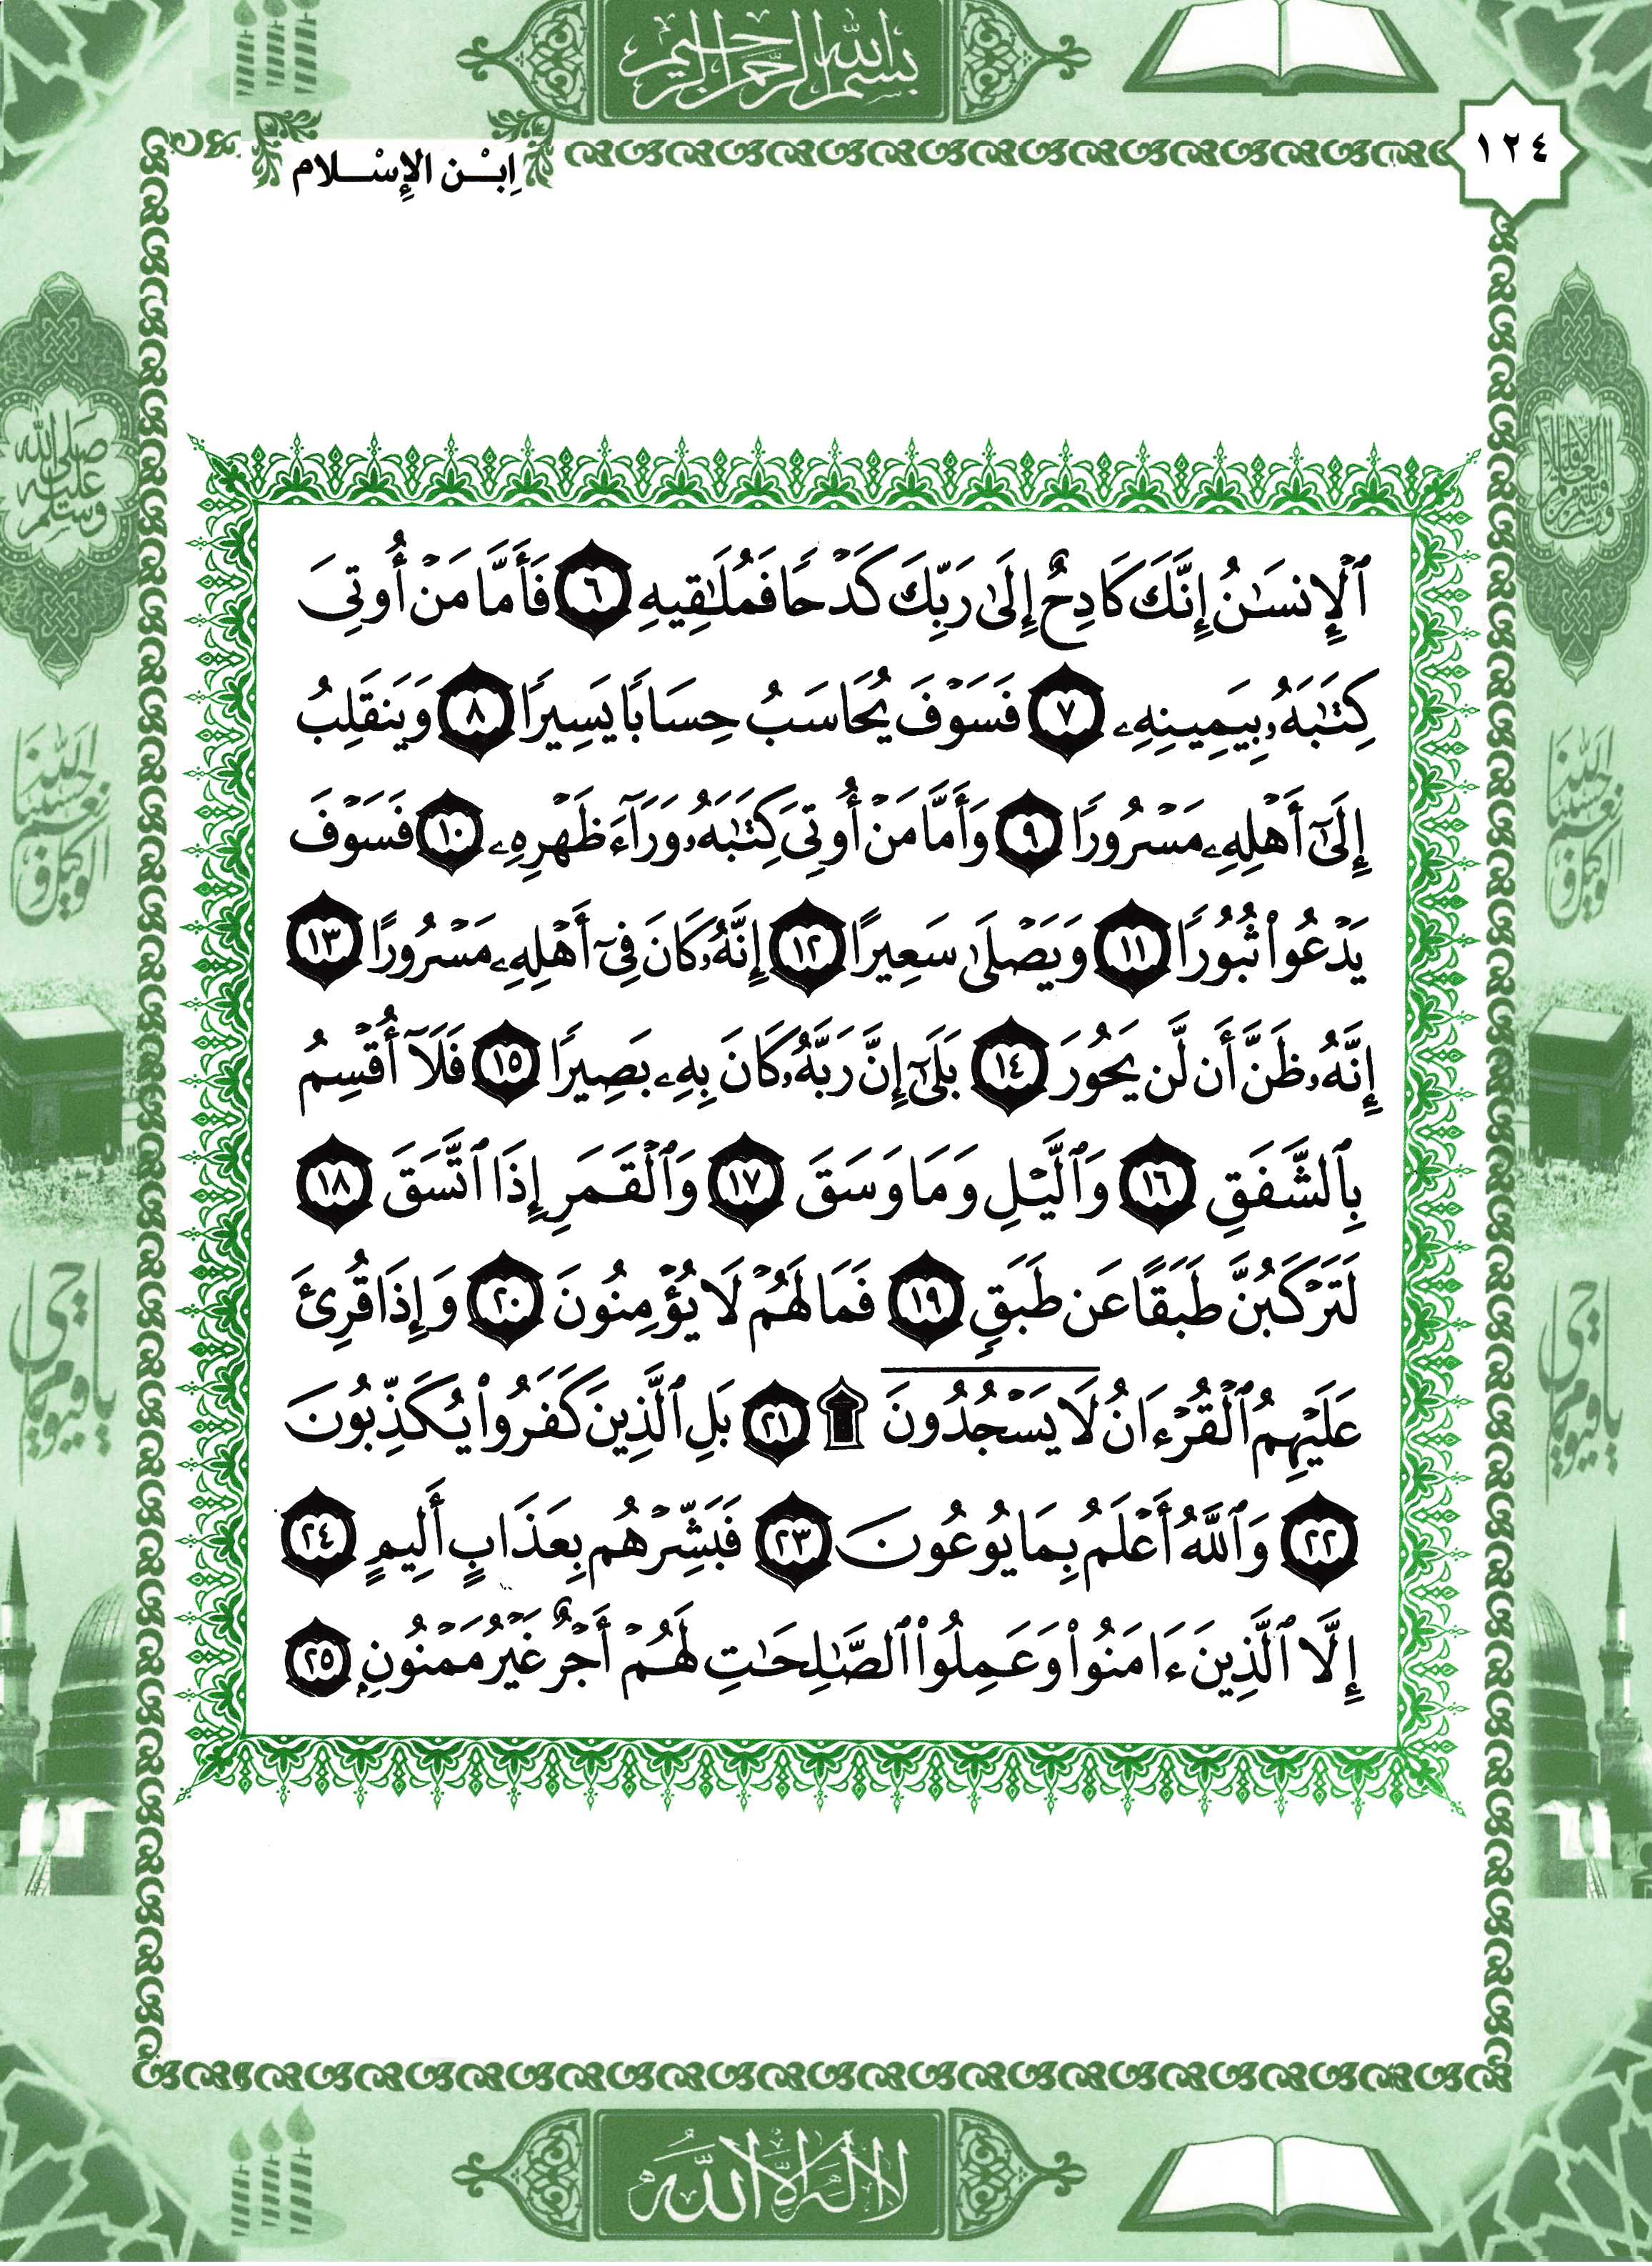 بسم الله الرحمن الرحيم
١٢٤
اِبْـن الإِسْـلام
ٱلْإِنسَٰنُ إِنَّكَ كَادِحٌ إِلَىٰ رَبِّكَ كَدْحًا فَمُلَٰقِيهِ ٦ فَأَمَّا مَنْ أُوتِىَ
كِتَٰبَهُۥ بِيَمِينِهِۦ ٧ فَسَوْفَ يُحَاسَبُ حِسَابًا يَسِيرًا ٨ وَيَنقَلِبُ
إِلَىٰٓ أَهْلِهِۦ مَسْرُورًا ٩ وَأَمَّا مَنْ أُوتِىَ كِتَٰبَهُۥ وَرَآءَ ظَهْرِهِۦ ١٠ فَسَوْفَ
يَدْعُوا۟ ثُبُورًا ١١ وَيَصْلَىٰ سَعِيرًا ١٢ إِنَّهُۥ كَانَ فِىٓ أَهْلِهِۦ مَسْرُورًا ١٣
إِنَّهُۥ ظَنَّ أَن لَّن يَحُورَ ١٤ بَلَىٰٓ إِنَّ رَبَّهُۥ كَانَ بِهِۦ بَصِيرًا ١٥ فَلَآ أُقْسِمُ
بِٱلشَّفَقِ ١٦ وَٱلَّيْلِ وَمَا وَسَقَ ١٧ وَٱلْقَمَرِ إِذَا ٱتَّسَقَ ١٨
لَتَرْكَبُنَّ طَبَقًا عَن طَبَقٍ ١٩ فَمَا لَهُمْ لَا يُؤْمِنُونَ ٢٠ وَإِذَا قُرِئَ
عَلَيْهِمُ ٱلْقُرْءَانُ لَا يَسْجُدُونَ ۩ ٢١ بَلِ ٱلَّذِينَ كَفَرُوا۟ يُكَذِّبُونَ
٢٢ وَٱللَّهُ أَعْلَمُ بِمَا يُوعُونَ ٢٣ فَبَشِّرْهُم بِعَذَابٍ أَلِيمٍ ٢٤
إِلَّا ٱلَّذِينَ ءَامَنُوا۟ وَعَمِلُوا۟ ٱلصَّٰلِحَٰتِ لَهُمْ أَجْرٌ غَيْرُ مَمْنُونٍ ٢٥
صلى الله
عليه
وسلم
حسبنا الله
ونعم الوكيل
حسبنا الله
ونعم الوكيل
يا حي يا قيوم
يا حي يا قيوم
لا اله الا الله